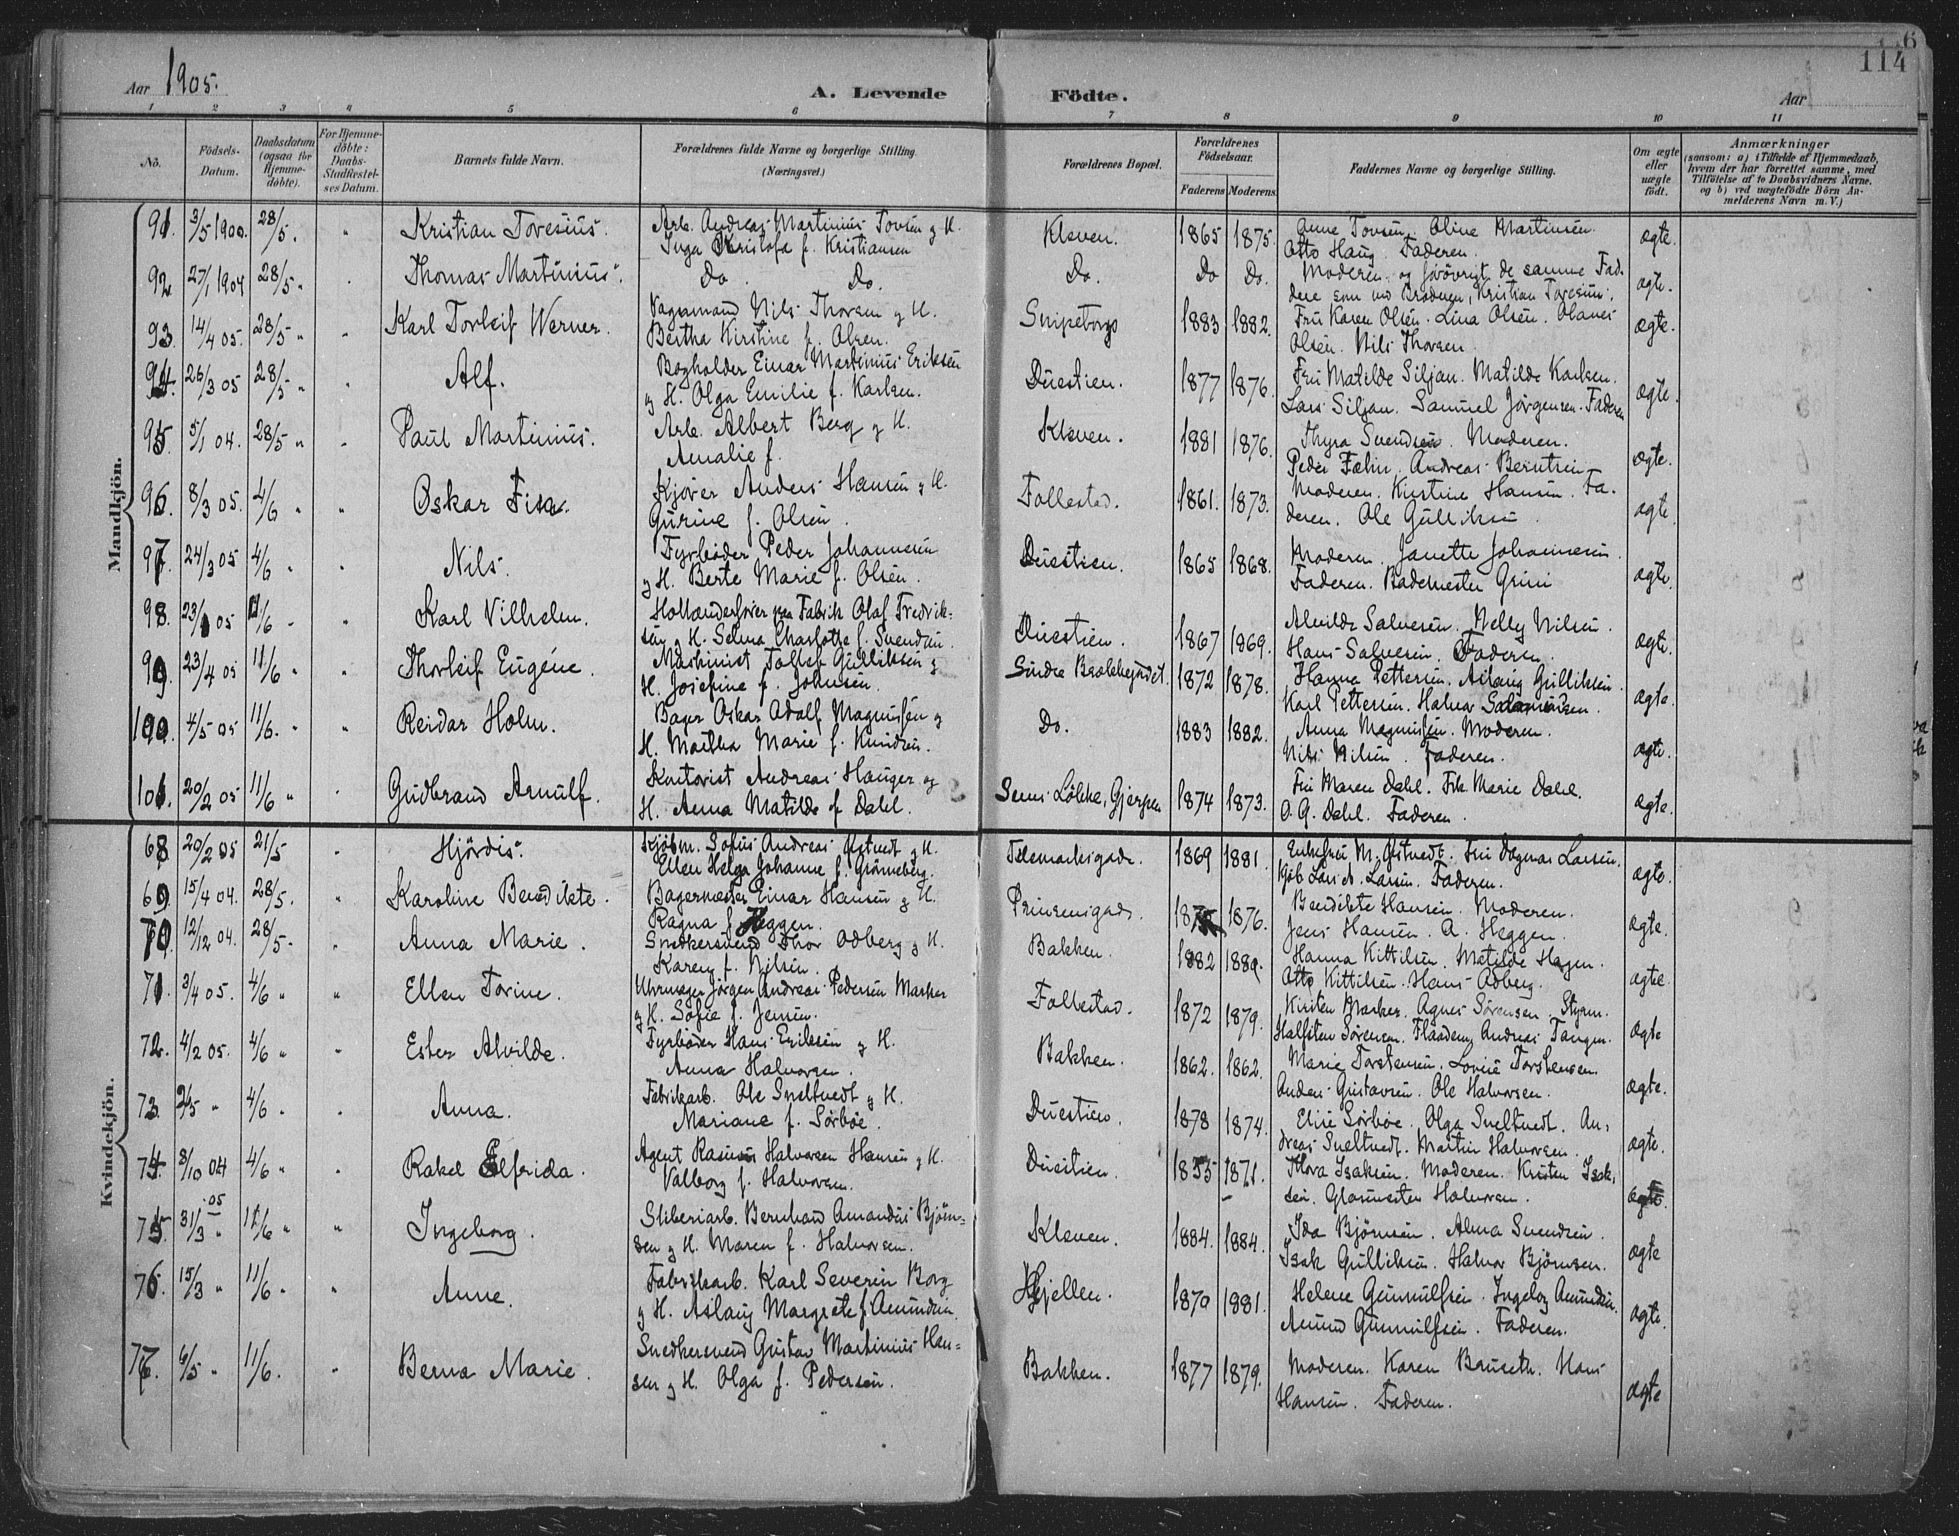 114
Aar 1905.
A. Levende Födte.
Aar
1 2 3 4 5 6 7 8 9 10 11
No.
Födsels-Datum.
Daabsdatum (ogsaa for Hjemme-döbte).
For Hjemme-döbte: Daabs-Stadfæstel-ses Datum.
Barnets fulde Navn.
Forældrenes fulde Navne og borgerlige Stilling. (Næringsvei.)
Forældrenes Bopæl.
Forældrenes Födselsaar.
Faderens. Moderens.
Faddernes Navne og borgerlige Stilling.
Om ægte eller uægte födt.
Anmærkninger
(saasom: a) i Tilfælde af Hjemmedaab,
hvem der har forrettet samme, med
Tilföielse af to Daabsvidners Navne,
og b) ved uægtefödte Börn An-
melderens Navn m. V.)
Mandkjön.
91. 3/5 1900. 28/5. " Kristian Toresius. Arb. Andreas Martinius Tovsen g H. Kleven. 1865 1875. Anne Tovsen. Oline Martinsen. ægte.
Inga Kristofa f. Kristiansen Otto Haug. Faderen.
92 27/1 1904 28/5 " Thomas Martinius. Do. Do. Do. Do Do. Moderen og forøvrigt de samme Fad- ægte.
dere som ved Broderen, Kristian Toresius.
93. 14/4 05. 28/5 " Karl Torleif Werner. Vognmand Nils Thorsen g H. Snipetorp 1883 1882. Fru Karen Olsen. Lina Olsen. Olaves ægte.
Bertha Kirstine f. Olsen. Olsen. Nils Thorsen.
94. 26/3 05 28/5 " Alf. Bogholder Einar Martinius Eriksen Duestien. 1877 1876. Fru Matilde Siljan. Matilde Karlsen. ægte.
g H. Olga Emilie f. Karlsen. Lars Siljan. Samuel Jørgensen. Faderen
95. 5/1 04. 28/5 " Paul Martinius. Arb. Albert Berg g H. Kleven. 1881 1876. Thyra Svendsen. Moderen. ægte.
Amalie f. Peder Fæhn. Andreas Berntsen
96. 8/3 05. 4/6 " Oskar Kjører Anders Hansen g H. Follestad. 1861. 1873. Moderen. Kirstine Hansen. Fa- ægte
Gurine f. Olsen. deren. Ole Gulliksen
97. 24/3 05 4/6 " Nils. Fyrbøder Peder Johannesen Duestien. 1865 1868. Moderen. Janette Johannesen. ægte.
g H. Berte Marie f. Olsen. Faderen. Bademester Grini
98. 23/ 05 11/6 " Karl Vilhelm. Hollænderfører paa Fabrik Olaf Fredrik- Duestien. 1867 1869. Alvilde Salvesen. Nelly Nilsen. ægte.
sen g H. Selma Charlotte f. Svendsen. Hans Salvesen. Faderen.
99. 23/4 05 11/6 " Thorleif Eugéne. Maskinist Tollef Gulliksen g 1872 1878. Hanna Pettersen. Aslaug Gulliksen. ægte.
H. Josefine f. Johnsen. Karl Pettersen. Halvor
100 4/5 05 11/6. " Reidar Holm. Bager Oskar Adolf Magnussen g Do. 1883 1882. Anna Magnussen. Moderen. ægte.
H. Martha Marie f. Knudsen. Nils Nilsen. Faderen.
101. 20/2 05 11/6 " Gudbrand Arnulf. Kontorist Andreas Hauger og Løkke, Gjerpen 1874 1873. Fru Maren Dahl. Frk. Marie Dahl. ægte.
H. Anna Matilde f Dahl. O. G. Dahl. Faderen.
Kvindekjön.
68 20/2 05 21/5 " Hjördis. Kjøbm. Sofus Andreas Østvedt g H. Telemarksgade. 1869 1881. Enkefru M. Østvedt. Fru Dagmar Larsen. ægte.
Ellen Helga Johanne f. Grønneberg. Kjøb. Lars A. Larsen. Faderen.
69. 15/4 04. 28/5. " Karoline Benedikte. Bagermester Einar Hansen g H. Prinsensgade. 1876. Benedikte Hansen. Moderen. ægte.
Ragna f Heggen. Jens Hansen. A. Heggen.
70. 12/12 04. 28/5. " Anna Marie. Snedkersvend Thor Adberg g H. Bakken. 1882 1880. Hanna Kittilsen. Matilde Hagen. ægte
Karen f. Nilsen. Otto Kittilsen. Hans Adberg.
71. 3/4 05. 4/6 " Ellen Torine. Uhrmager Jörgen Andreas Pedersen Marker Follestad. 1872 1879. Kirsten Marker. Agnes Sørensen. Styrm. ægte
g H. Sofie f. Jensen. Halfsten Sørensen. Flaadem. Andreas Tangen.
72. 4/2 05. 4/6 " Ester Alvilde. Fyrbøder Hans Eriksen g H. Bakken. 1862. 1862. Marie Torstensen. Lovise Torstensen. ægte.
Anna Halvorsen. Anders Gustavsen. Ole Halvorsen.
73. 2/5 " 4/6 " Anna. Fabrikarb. Ole Sneltvedt g H. Duestien 1878 1874. Elise Sørbøe. Olga Sneltvedt. An- ægte.
Mariane f. Sørbøe. dreas Sneltvedt. Martin Halvorsen.
74. 8/10 04 4/6 " Rakel Elfrida. Agent Rasmus Halvorsen Hansen g H. Duestien. 1855 1871. Thora Isaksen. Moderen. Kristen Isak- ægte
Valborg f. Halvorsen. sen. Glasmester Halvorsen.
75. 31/3 05 11/6 " Ingeborg. Sliberiarb. Bernhard Amandus Bjørn- Kleven. 1884. 1884. Ida Bjørnsen. Alma Svendsen. ægte
sen g H. Maren f. Halvorsen. Isak Gulliksen. Halvor Bjørnsen.
76. 15/3 " 11/6 " Anne. Fabrikarb. Karl Severin Borg Hjellen. 1870 1881. Helene Gunnulfsen. Ingeborg Amundsen. ægte.
g H. Aslaug Margrete f. Amundsen. Amund Gunnulfsen. Faderen.
77. 6/5 " 11/6. " Berna Marie. Snedkersvend Gustav Martinius Han- Bakken. 1877 1879. Moderen. Karen Bauseth. Hans ægte
sen g H. Olga f. Pedersen. Hansen. Faderen.